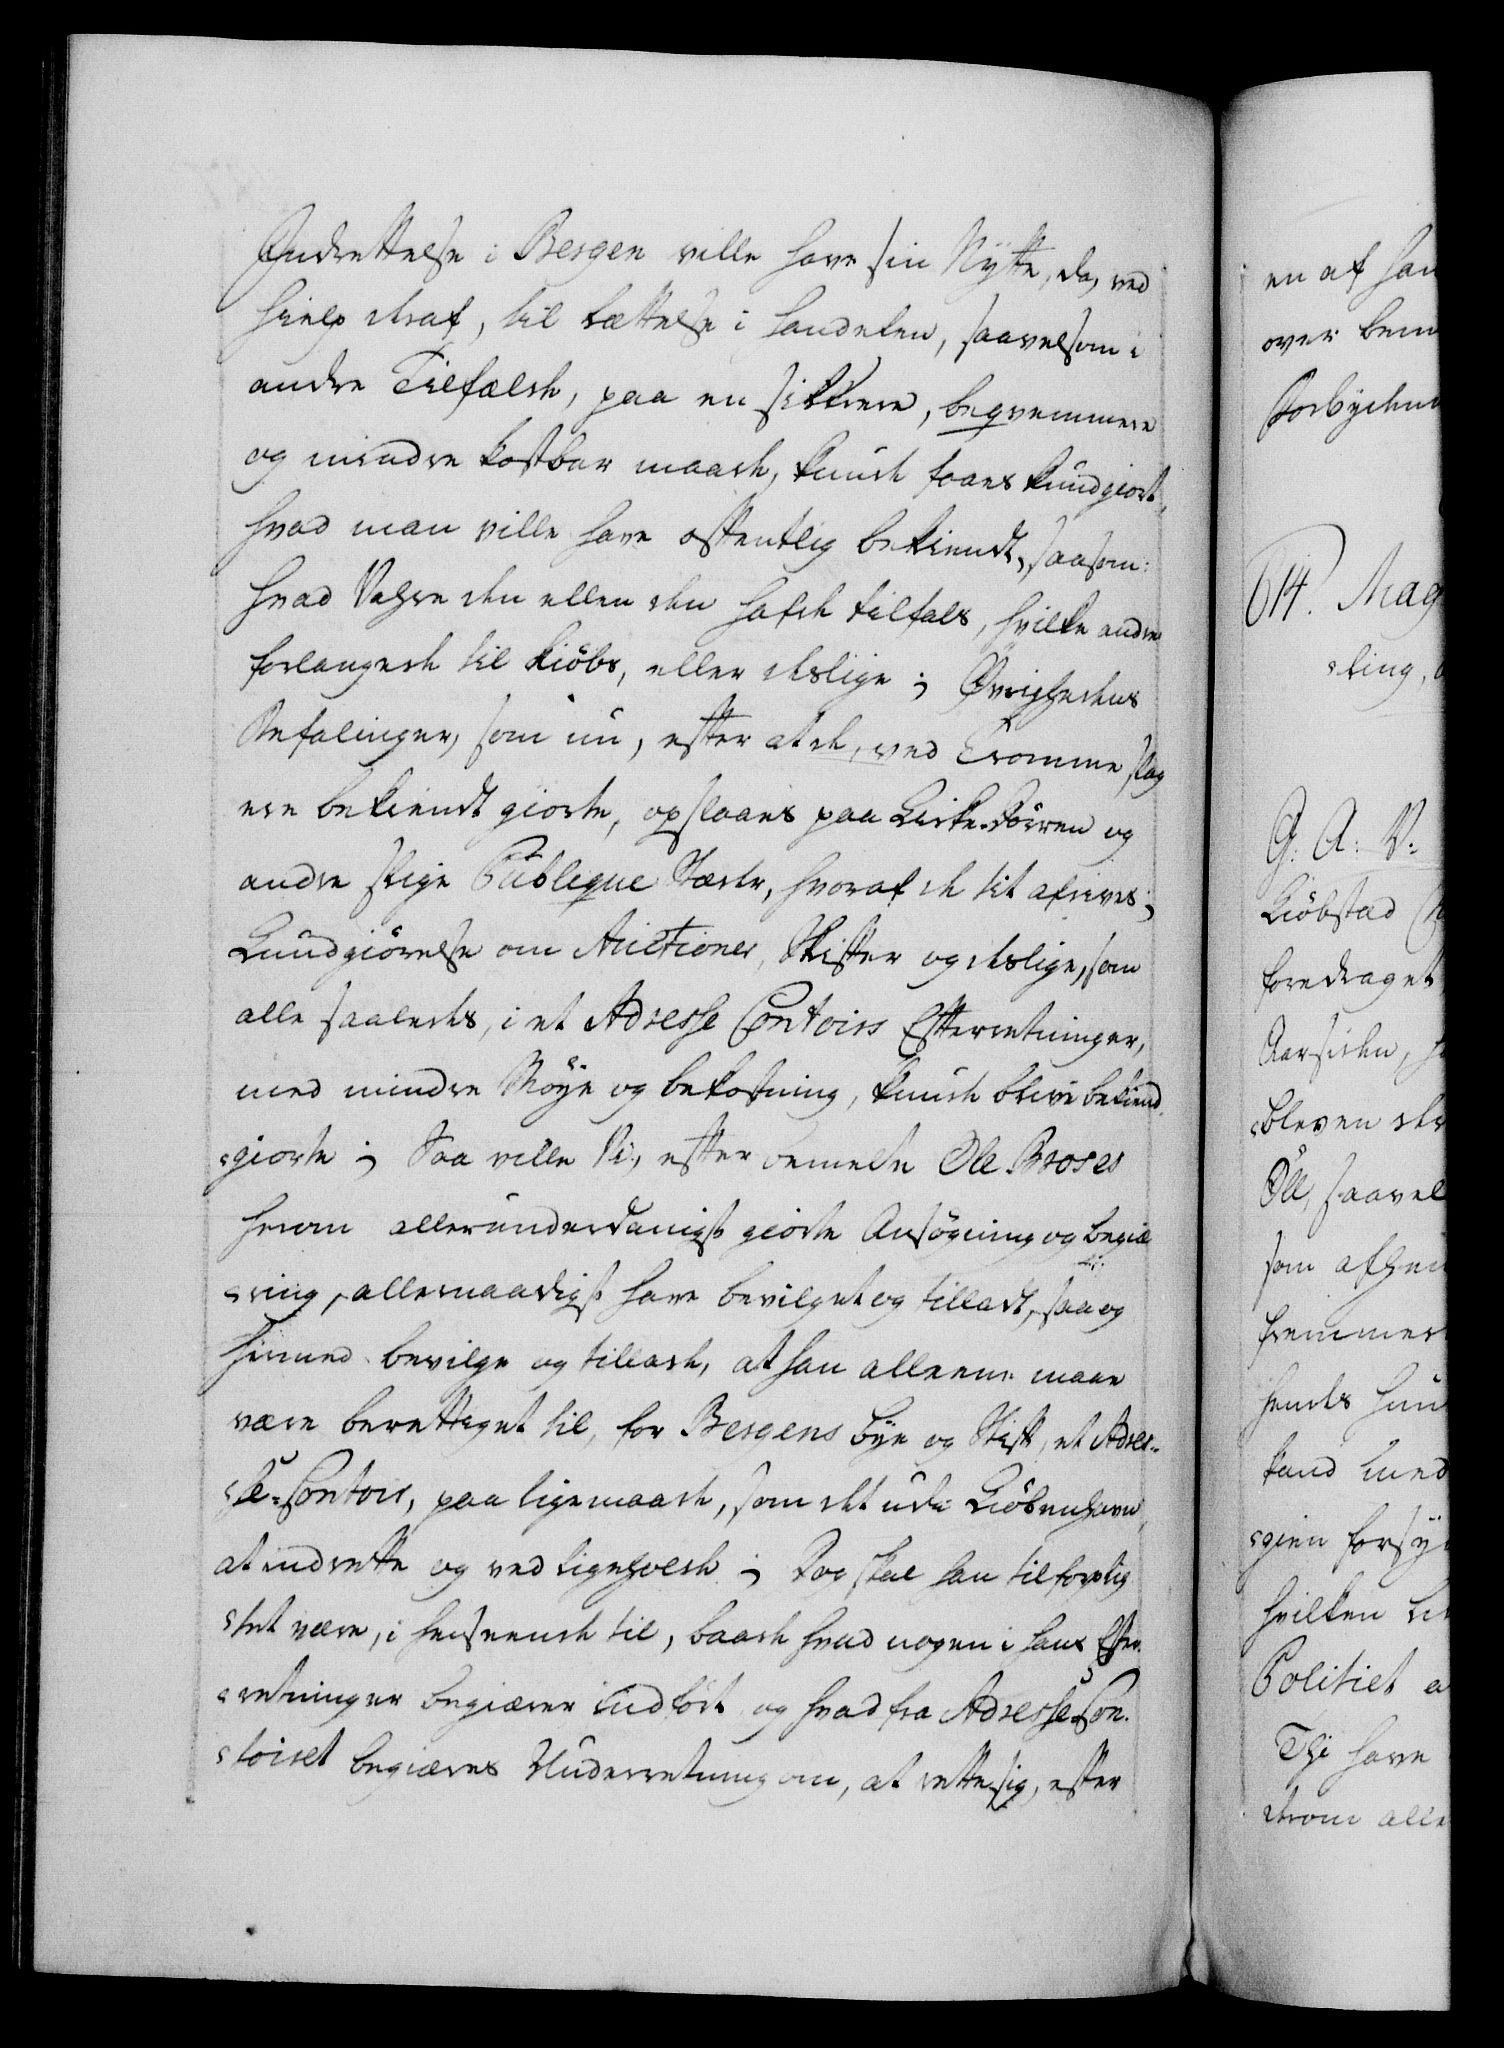 Indrettelse i Bergen ville have sin Nytte, da, ved
hielp deraf, til lættelse i Handelen, saavelsom i
andre Tilfælde, paa en sikkrere, beqvemmere
og mindre kostbar maade, kunde faaes kundgiort,
hvad man ville have offentlig bekiendt, saasom:
hvad Vahre den eller den hafde tilfals, hvilke andre
forlangede til kiöbs, eller deslige; Øvrighedens
Befalinger, som nu, efter at de, ved Tromme slag
ere bekiendt giorte, opslaaes paa Kirke-Dörren og
andre slige Publique Stæder, hvoraf de tit afrives;
Kundgiörelse om Auctioner, Skifter og deslige, som
alle saaledes, i et Adresse Contoirs Efterretninger,
med mindre Möye og bekostning, kunde blive bekiend
giorte; Saa ville Vi, efter bemelte Ole Broses
herom allerunderdanigst giorte Ansögning og begiæ
ring, allernaadigst have bevilget og tilladt, saa og
hermed bevilge og tillade, at han alleene maae
være berettiget til, for Bergens bye og Stift, et Adres-
se-Contoir, paa ligemaade, som det udi Kiöbenhavn,
at indrette og ved ligeholde; Dog skal han tilforplig
tet være, i henseende til, baade hvad nogen i hans Efter
retninger begiærer indfört og hvad fra Adresse-Con-
toiret begiæres Underretning om, at rette sig, efter
en af han
over bem
Forbydende
614. Mag
ling,
G: A: V:
Kiöbstad
foredraget
Aarsiden,
bleven
Öll, saavel
som
fremmer
hendes
kand med
gien forsy
hvilken
Politiet a
Thi have
derom alle